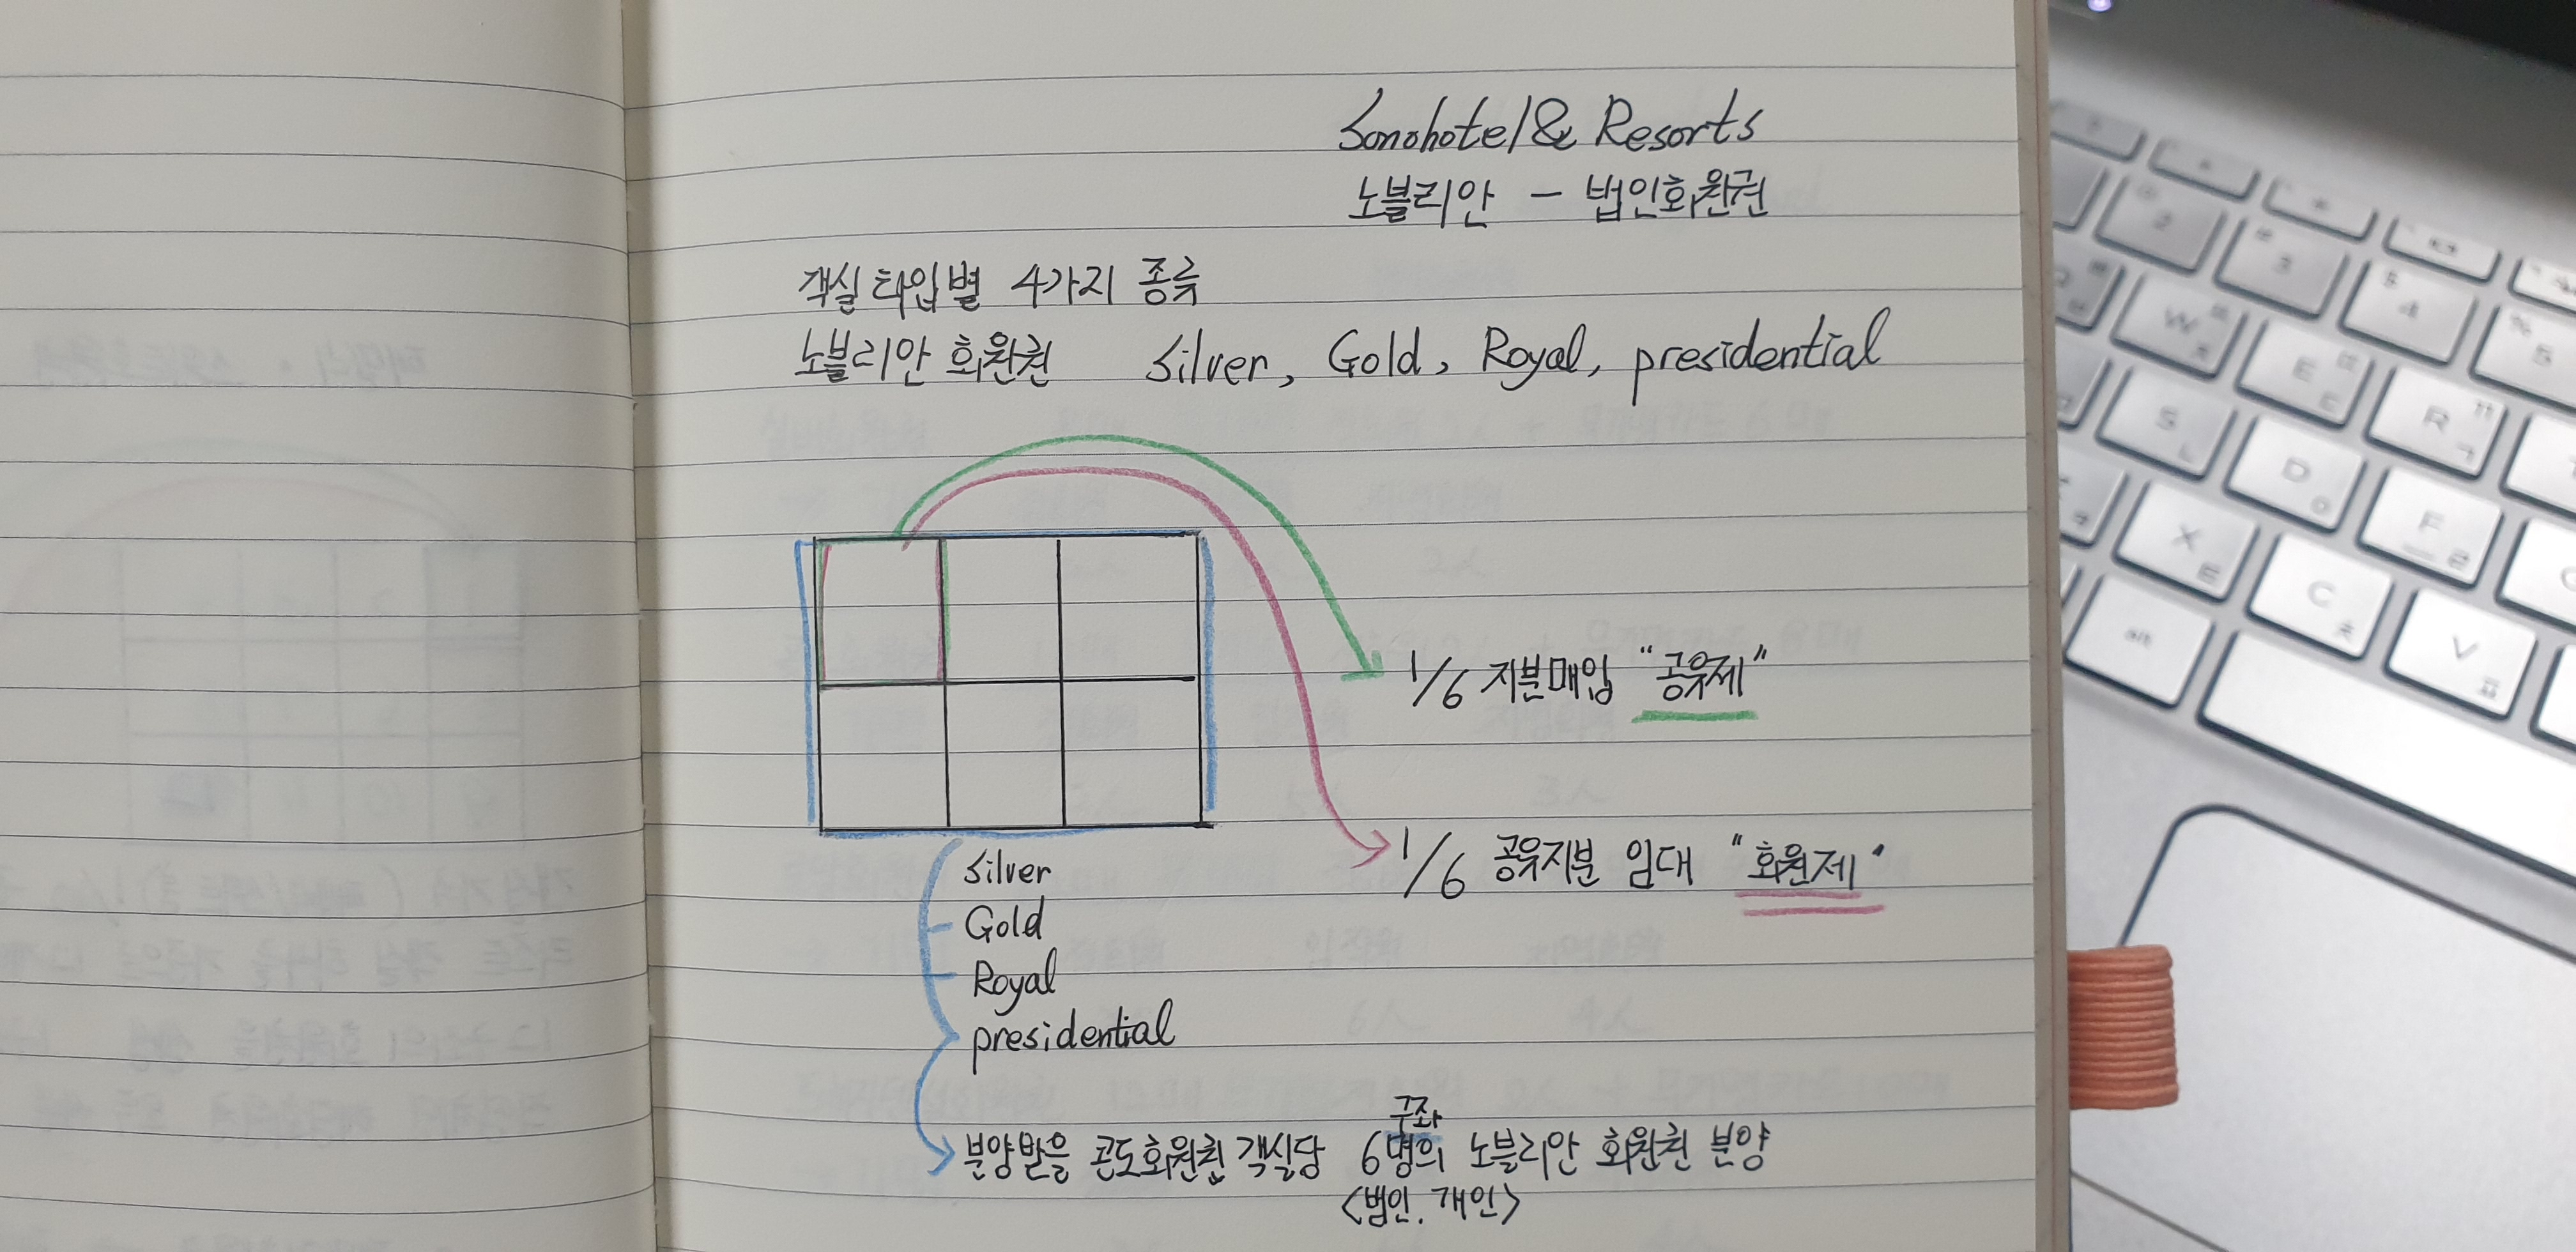 Sonohotel & Resorts
노블리안 - 법인회원권
객실 타입별 4가지 종류
노블리안 회원권 Silver, Gold, Royal, presidential
1/6 지분매입 "공유제"
1/6 공유지분 임대 "회원제"
Silver
Gold
Royal
presidential
구좌
분양받을 콘도회원권 객실당 6명의 노블리안 회원권 분양
<법인. 개인>
2
3
4
5
W
E
R
S
D
F
X
C
V
alt